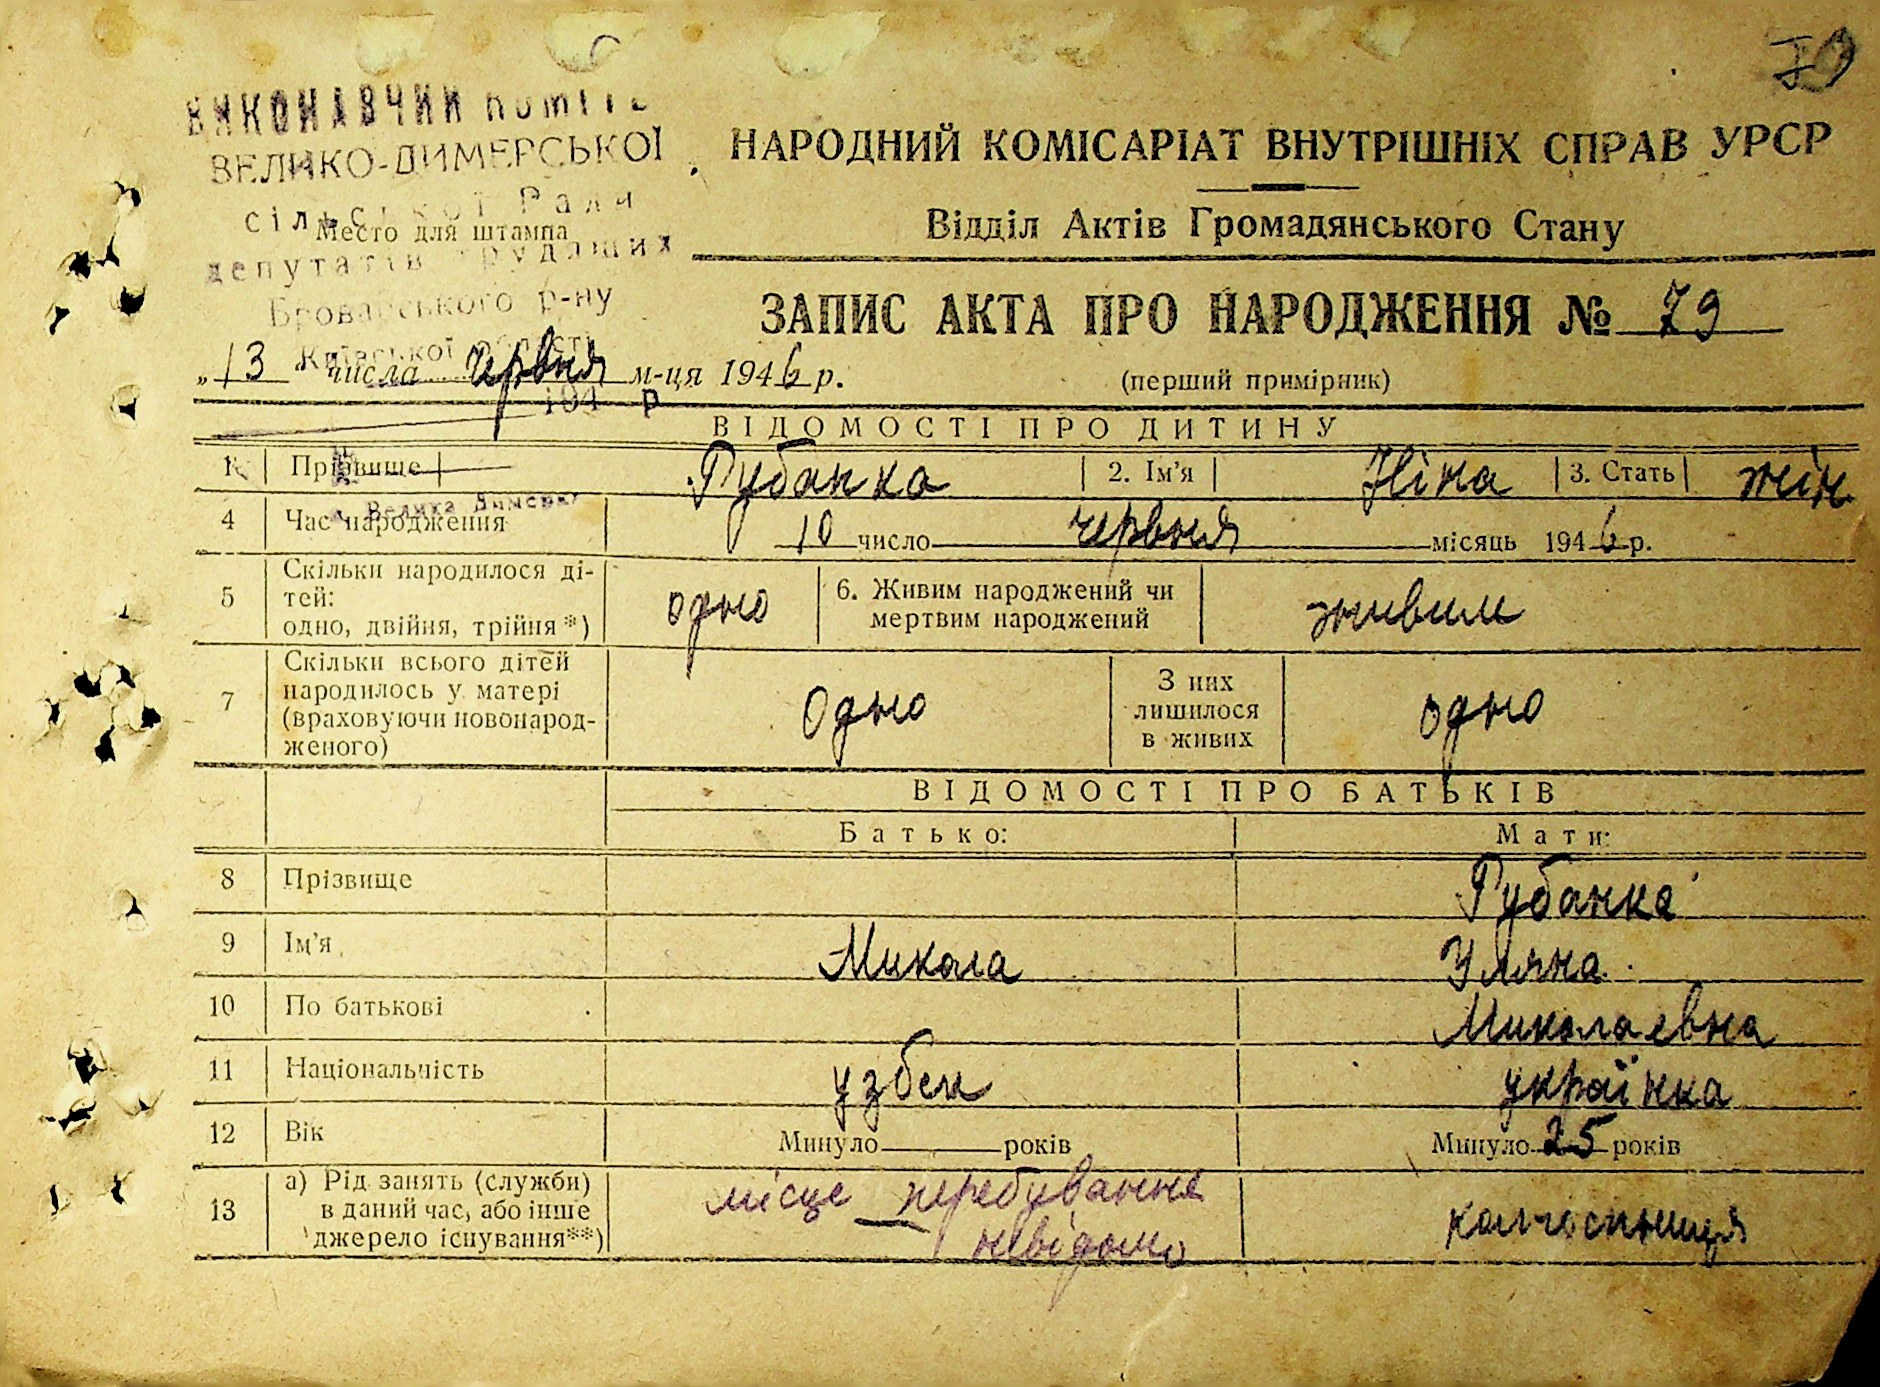 79
ВИКОНАВЧИЙ Коміте
ВЕЛИКО-ДИМЕРСЬКОЇ
сільської Ради
Место для штампа
депутатів трудящих
Броварського р-ну
Київської області
194 р
с. Велика Димерка
НАРОДНИЙ КОМІСАРІАТ ВНУТРІШНІХ СПРАВ УРСР
Відділ Актів Громадянського Стану
ЗАПИС АКТА ПРО НАРОДЖЕННЯ № 79
„13“ числа червня м-ця 1946 р.
(перший примірник)
ВІДОМОСТІ ПРО ДИТИНУ
1 Прізвище Рубанка 2. Ім'я Ніна 3. Стать жін
4 Час народження 10 число червня місяць 1946 р.
5 Скільки народилося ді-
тей:
одно, двійня, трійня*) одно 6. Живим народжений чи
мертвим народжений живим
7 Скільки всього дітей
народилось у матері
(враховуючи новонарод-
женого) Одно З них
лишилося
в живих одно
ВІДОМОСТІ ПРО БАТЬКІВ
Батько: Мати:
8 Прізвище Рубанка
9 Ім'я Микола Уляна
10 По батькові Миколаєвна
11 Національність узбек українка
12 Вік Минуло років Минуло 25 років
13 а) Рід занять (служби)
в даний час, або інше
джерело існування**) місце перебування
невідомо колгоспниця